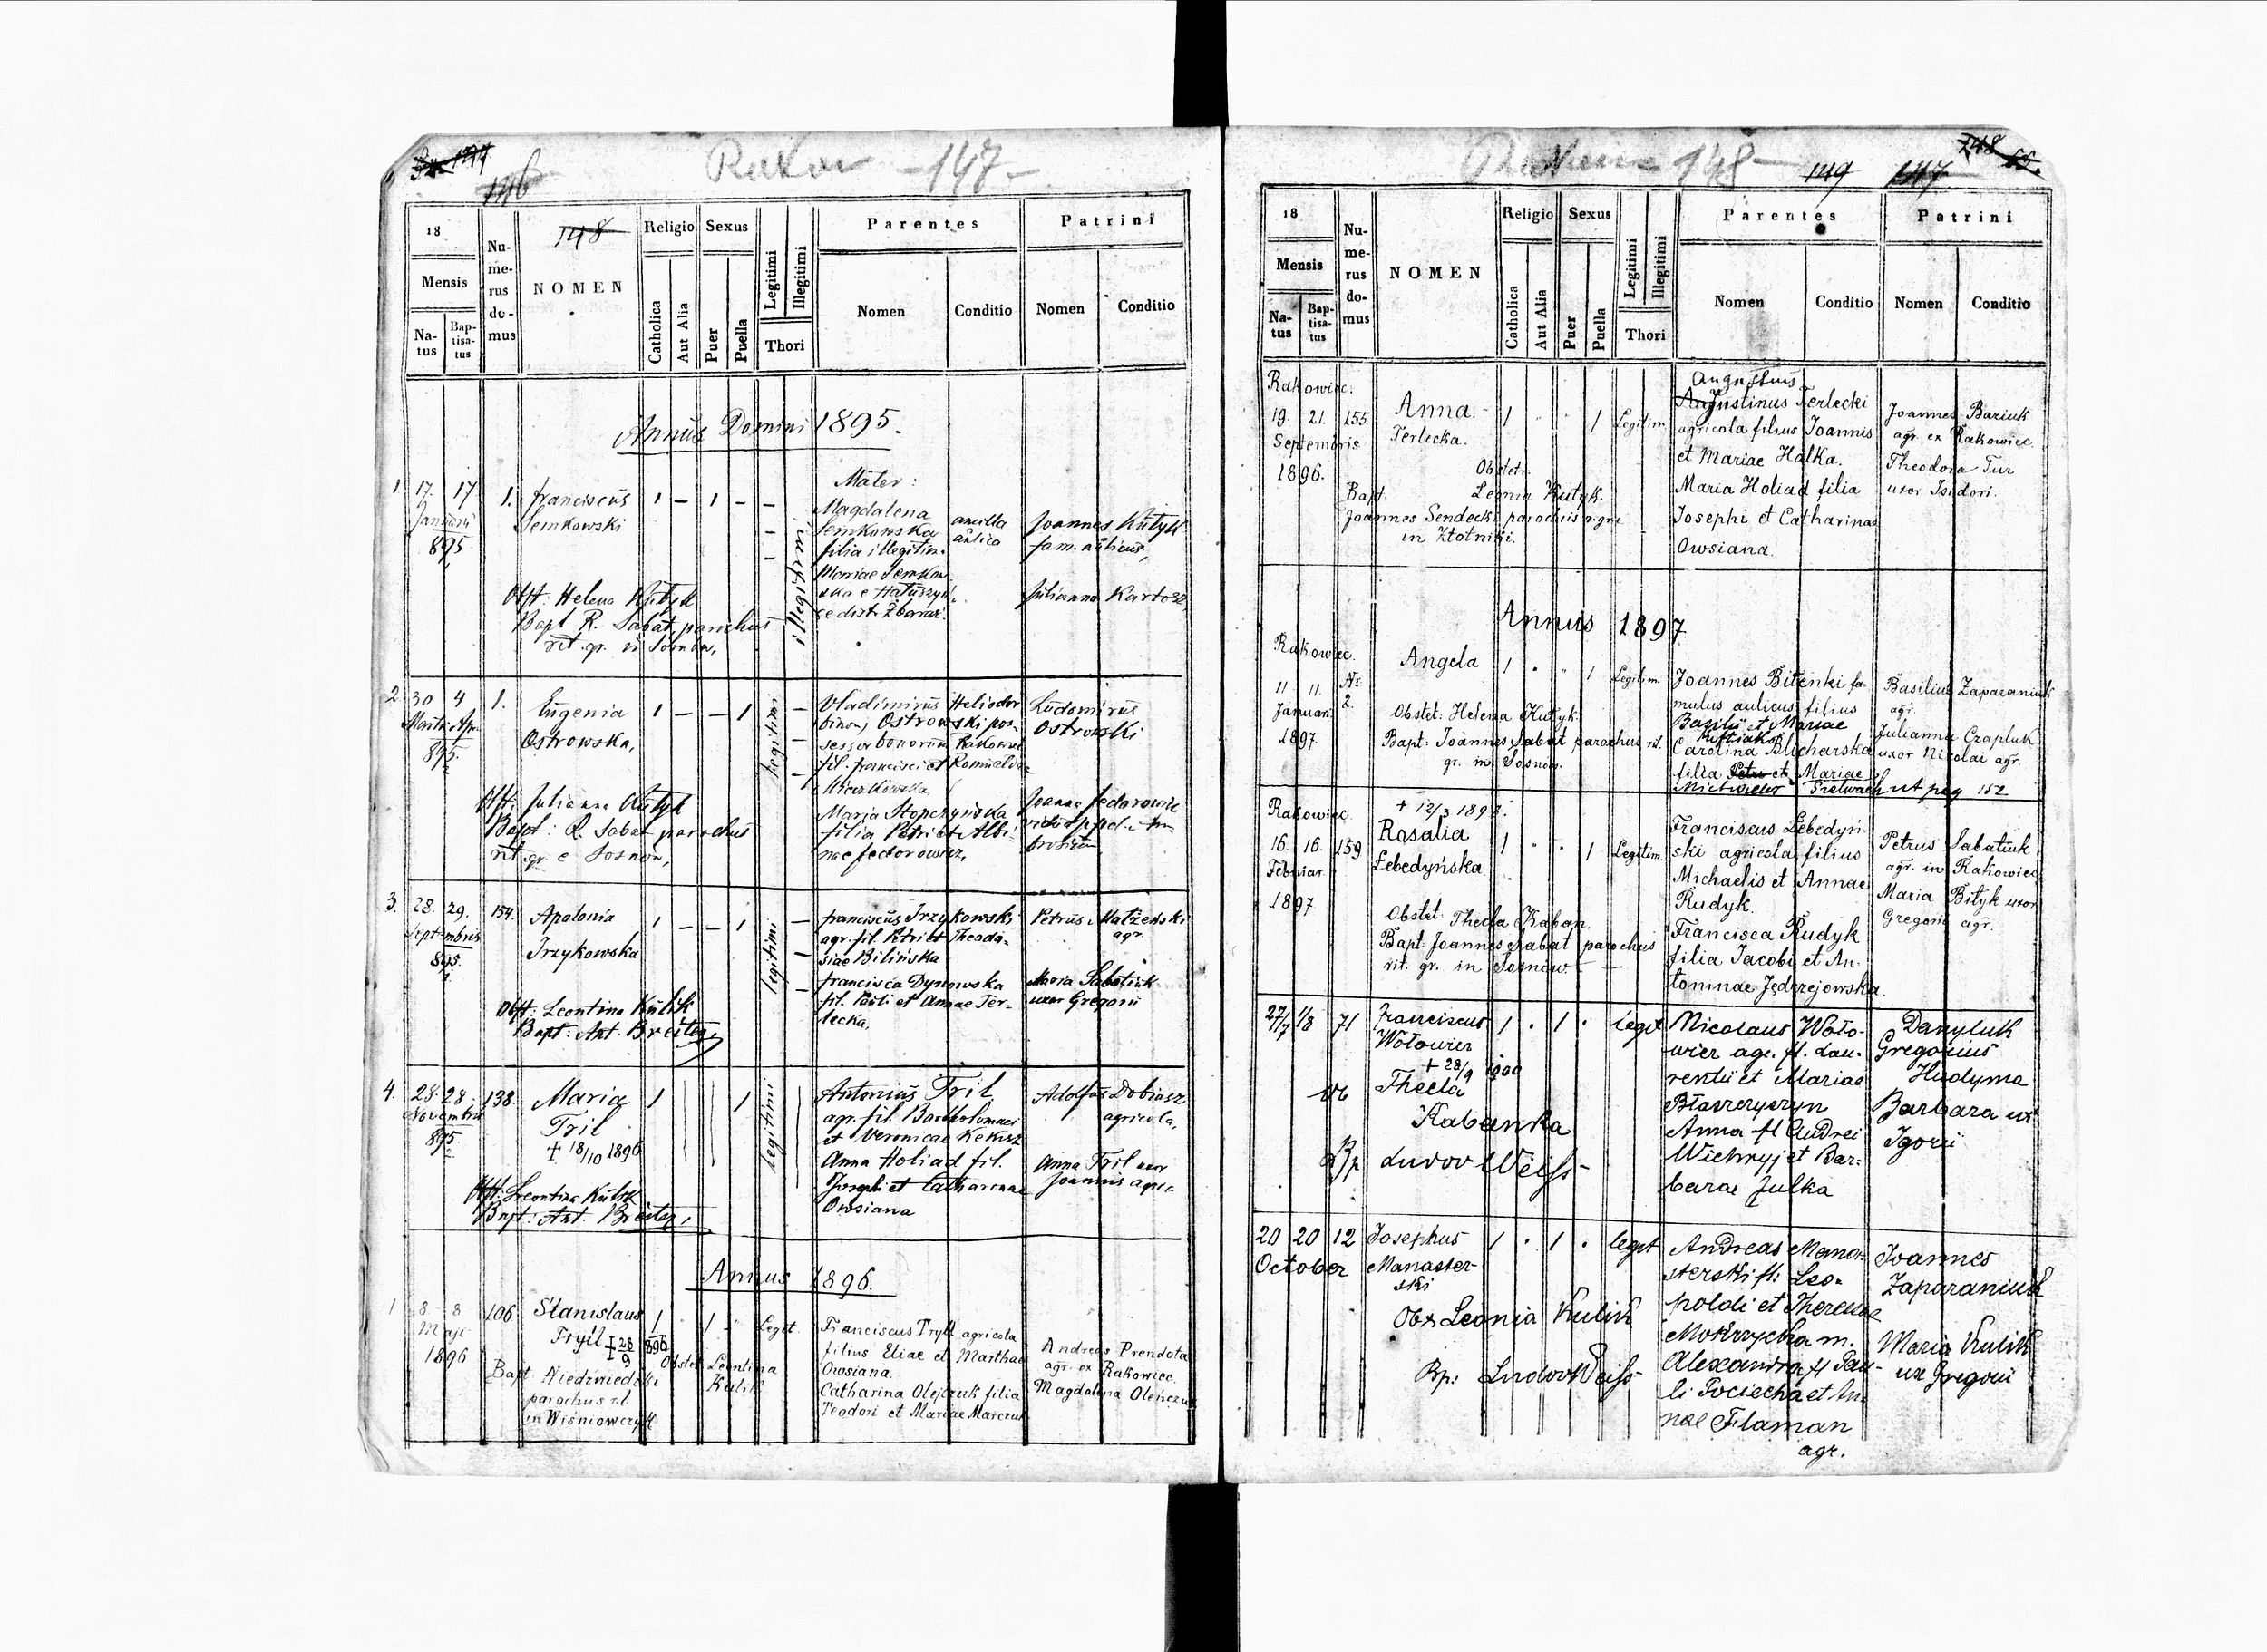 146
Rakow - 147 -
148
18
Mensis
Na-
tus
Bap-
tisa-
tus
Nu-
me-
rus
do-
mus
NOMEN
Religio
Catholica
Aut Alia
Sexus
Puer
Puella
Legitimi
Illegitimi
Thori
Parentes
Nomen
Conditio
Patrini
Nomen
Conditio
Annus Domini 1895.
1. 17. 17 1. Franciscus 1 - 1 - -
Januarii
895
Semkowski
illegitimi
Mater:
Magdalena
Semkowska
filia illegitim.
Mariae Semkow
ska e
ancilla
aulica
Joannes Kutyk
fam. aulicus,
Julianna
Obst: Helena Kutyk
Bapt R. Sabat parochus
rit. gr. in Sosnów,
2. 30 4 1. Eugenia 1 - - 1
895
Ostrowska,
legitimi
Vladimirus Heliodor
Ostrowski pos-
sessor bonorum Rakowiec
fil. Francisci et Romualdae
Maria Stopczyńska
filia Petri et Albi-
nae Fedorowicz,
Ludomirus
Ostrowski
Joanna Fedorowicz
Obst: Julianna Kutyk
Bapt: R. Sabat parochus
rit. gr. e Sosnow,
3. 28. 29. 154. Apolonia 1 - - 1
Septembris
895.
Irzykowska
legitimi
Franciscus Irzykowski
agr. fil. Petri et Theodo-
siae Bilińska
Francisca Dynowska
fil. Pauli et Annae Ter-
lecka,
Petrus
agr.
Maria Sabatiuk
uxor Gregorii
Obst: Leontina Kulik
Bapt: Ant. Breiter
4. 28. 28. 138. Maria 1 1
Novembris
895.
Tril
+ 18/10 1896
legitimi
Antonius Tril
agr. fil. Bartholomaei
et Veronicae Kekisz
Anna Holiad fil.
Josephi et Catharinae
Owsiana
Adolfus Dobiasz
agricola,
Anna Tril uxor
Joannis agric.
Obst: Leontina Kulik
Bapt: Ant. Breiter,
Annus 1896.
1 8 8 106 Stanislaus 1 1 Legit.
Maji
1896
Tryll + 25/9 896
Franciscus Tryll agricola
filius Eliae et Marthae
Owsiana.
Catharina Olejczuk filia
Teodori et Mariae Marczuk
Andreas Prendota
agr. ex Rakowiec.
Magdalena Oleńczuk
Obstet Leontina
Kulik
Bapt Niedzwiedzki
parochus r.l.
in Wiśniowczyk
148 -
149
147
18
Mensis
Na-
tus
Bap-
tisa-
tus
Nu-
me-
rus
do-
mus
NOMEN
Religio
Catholica
Aut Alia
Sexus
Puer
Puella
Legitimi
Illegitimi
Thori
Parentes
Nomen
Conditio
Patrini
Nomen
Conditio
Rakowiec.
19. 21. 155. Anna 1 1 Legitim.
Septembris
1896.
Terlecka.
Augustus
Augustinus Terlecki
agricola filius Joannis
et Mariae Halka.
Maria Holiad filia
Josephi et Catharinae
Owsiana.
Joannes Bariuk
agr. ex Rakowiec.
Theodora Tur
uxor Isidori.
Obstetr.
Leonia Kutyk.
Bapt.
Joannes Sendecki parochus r. gr.
in Złotniki.
Annus 1897.
Rakowiec.
11 11. Nr. 2. Angela 1 1 Legitim.
Januar.
1897.
Joannes Bitenki fa-
mulus aulicus filius
Basilii et Mariae
Carolina Blicharska
filia Petri et Mariae
ut pag 152
Basilius Zaparaniuk
agr.
Julianna Czapluk
uxor Nicolai agr.
Obstet: Helena Kutyk.
Bapt: Joannes Sabat parochus rit.
gr. in Sosnow.
Rakowiec.
+ 12/3 1898.
16. 16. 159 Rosalia 1 1 Legitim.
Februar.
1897
Łebedyńska
Franciscus Łebedyń-
ski agricola filius
Michaelis et Annae
Rudyk.
Francisca Rudyk
filia Jacobi et An-
toninae Jędrzejowska.
Petrus Sabatiuk
agr. in Rakowiec
Maria Bityk uxor
Gregorii agr.
Obstet: Thecla Kaban.
Bapt: Joannes Sabat parochus
rit. gr. in Sosnów.
27/7 1/8 71 Franciscus 1 1 legit
Wołowiec
+ 28/9 1900
Nicolaus Woło-
wiec agr. fl. Lau-
rentii et Mariae
Błaszczyszyn
Anna fl Andrei
Wichryj et Bar-
barae Julka
Danyluk
Gregorius
Hudyma
Barbara ux
Igorii
Thecla
Kabanka
Bp Ludov Weiss
20 20 12 Josephus 1 1 legit
October
Manaster-
ski
Andreas Mana-
sterski fl: Leo-
poldi et Theresae
Mokrzycka m.
Alexandra fl Pau-
li Pociecha et An-
nae Flaman
agr.
Joannes
Zaparaniuk
Maria Kulik
ux Gregorii
Obs Leonia Kulik
Bp: Ludov Weiss